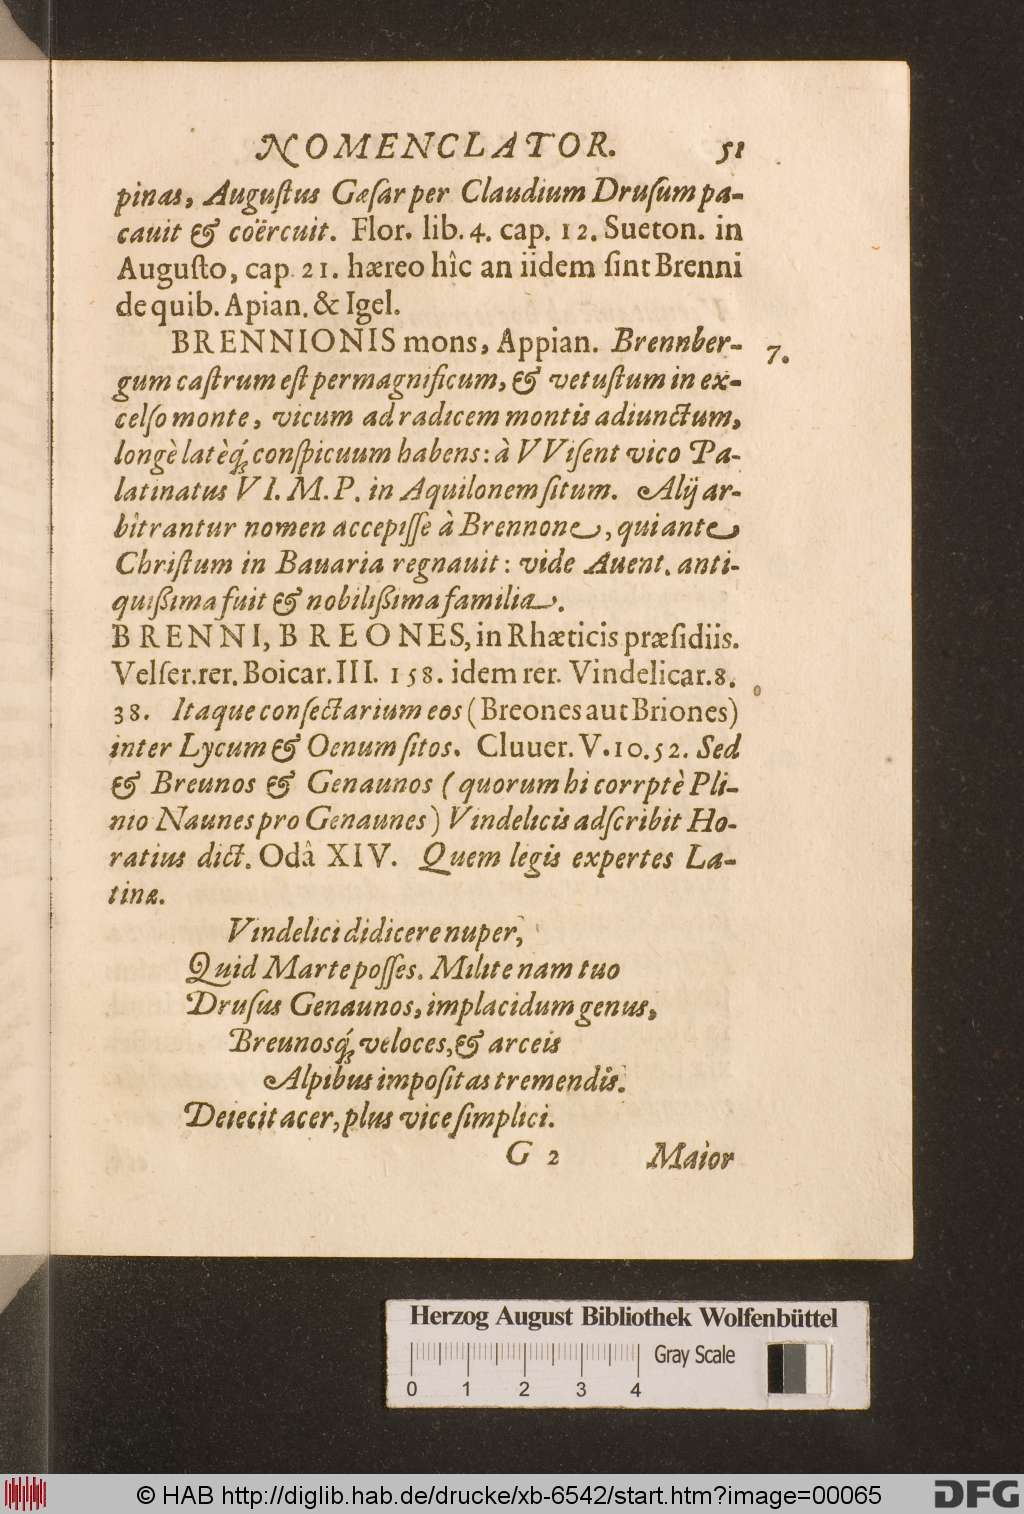 NOMENCLATOR. 51
pinas, Auguſtus Cæſar per Claudium Druſum pa-
cauit & coërcuit. Flor. lib. 4. cap. 12. Sueton. in
Auguſto, cap. 21. hæreo hîc an iidem ſint Brenni
de quib. Apian. & Igel.
BRENNIONIS mons, Appian. Brennber- 7.
gum caſtrum eſt permagnificum, & vetuſtum in ex-
celſo monte, vicum ad radicem montis adiunctum,
longè latèq́; conſpicuum habens: à VViſent vico Pa-
latinatus VI. M. P. in Aquilonem ſitum. Alij ar-
bitrantur nomen accepiſſe à Brennone, qui ante
Chriſtum in Bauaria regnauit: vide Auent. anti-
quißima fuit & nobilißima familia.
BRENNI, BREONES, in Rhæticis præſidiis.
Velſer. rer. Boicar. III. 158. idem rer. Vindelicar. 8.
38. Itaque conſectarium eos (Breones aut Briones)
inter Lycum & Oenum ſitos. Cluuer. V. 10. 52. Sed
& Breunos & Genaunos (quorum hi corrptè Pli-
nio Naunes pro Genaunes) Vindelicis adſcribit Ho-
ratius dict. Odâ XIV. Quem legis expertes La-
tinæ.
Vindelici didicere nuper,
Quid Marte poſſes. Milite nam tuo
Druſus Genaunos, implacidum genus,
Breunosq́; veloces, & arceis
Alpibus impoſitas tremendis.
Deiecit acer, plus vice ſimplici.
G 2 Maior
Herzog August Bibliothek Wolfenbüttel
Gray Scale
0 1 2 3 4
© HAB http://diglib.hab.de/drucke/xb-6542/start.htm?image=00065
DFG